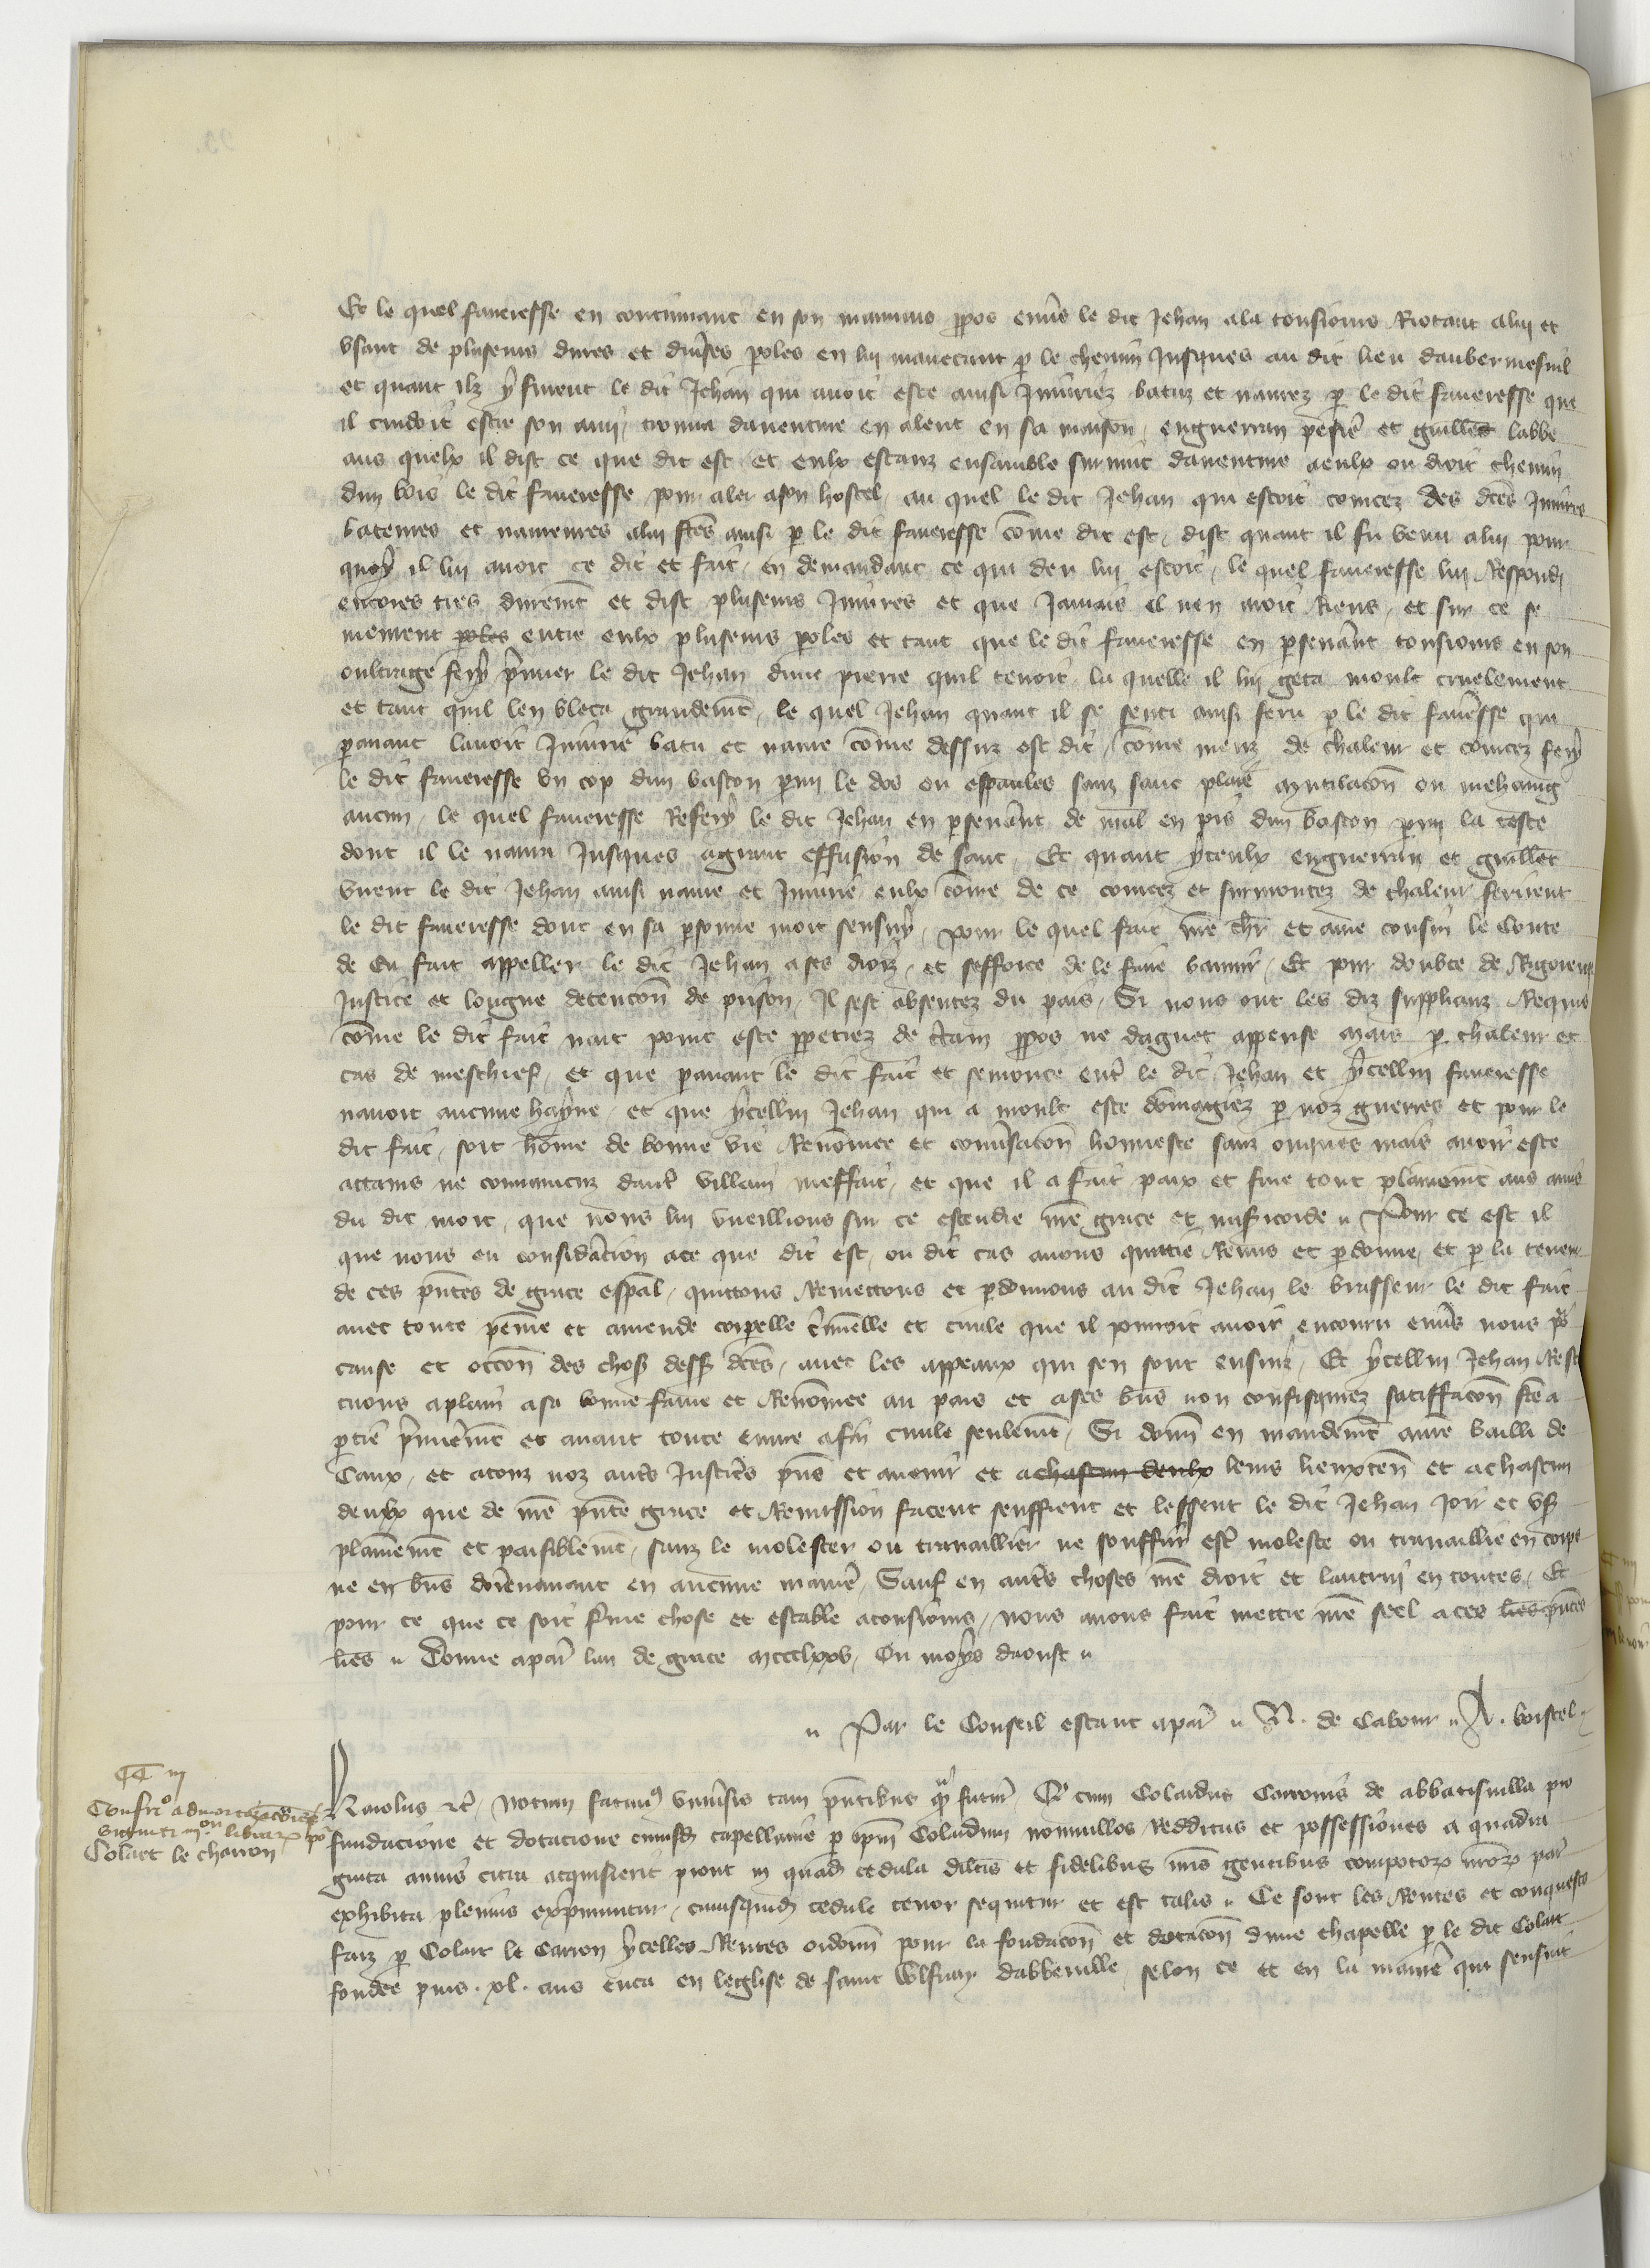 Et le quel faueresse en continuant en son mauuais ppos enu̕s le dit Jehan ala tousiours Riotant alui et
vsant de pluseurs dures et diu̕ses poles en lui manecant p le chemin Jusques au dit lieu daubermesnil
et quant ilz y furent le dit Jehan qui auoit este ainsi Jniuriez batuz et naurez p le dit faueresse que
il cuidoit estre son ami, trouua dauenture en alent en sa maison, enguerran et guillet labbe
aus quelx il dist ce que dit est, et eulx estanz ensamble suruint dauenture aeulx ou droit chemin
dun bois le dit faueresse pour aler ason hostel, au quel le dit Jehan qui estoit courcez des dc̅es Jniures
bateures et naureures alui fc̅es ainsi p le dit faueresse co̅me dit est, dist quant il fu venu alui pour
quoy il lui auoit ce dit et fait, en demandant ce qui deu lui estoit, le quel faueresse lui Respondi
encores tres durem̅t et dist pluseurs Jniures et que Jamais il nen auroit Riens, et sur ce se
murent poles entre eulx pluseurs poles et tant que le dit faueresse en pseuu̕ant tousiours en son
oultrage fery p̕mier le dit Jehan dune pierre quil tenoit, la quelle il lui geta moult cruelement
et tant quil len bleca grandem̅t, le quel Jehan quant il se senti ainsi feru p le dit fau̕esse qui
pauant lauoit Jniurie batu et naure co̅me dessuz est dit, co̅me meuz de chaleur et courcez fery
le dit faueresse vn cop dun baston pmi le dos ou espaules sanz sanc plaie mutilacon̅ ou mehaing
aucun, le quel faueresse Refery le dit Jehan en pseuu̕ant de mal en pis dun baston pmi la teste
dont il le naura Jusques agrant effusion de sanc, Et quant yceulx enguerran et guillet
virent le dit Jehan ainsi naure et Jniurie eulx co̅me de ce courcez et surmontez de chaleur ferirent
le dit faueresse dont en sa psonne mort sensuy, pour le quel fait nr̅e ch̕r et ame cousin le Conte
de Eu fait appeller le dit Jehan a ses droiz, et sefforce de le faire bannir, Et pour doubte de Rigoreuse
Justice et longue detencon̅ de prison, Il sest absentez du pais, Si nous ont les diz supplianz Requis
co̅me le dit fait nait point este ppetrez de c̕tain ppos ne daguet appense mais p chaleur et
cas de meschief, et que pauant le dit fait et semonce entr̕ le dit Jehan et ycellui faueresse
nauoit aucune hayne, et que ycellui Jehan qui a moult este do̅magiez p noz guerres et pour le
dit fait, soit ho̅me de bonne vie Reno̅mee et conu̕sacon̅ honneste sanz onques mais auoir este
attains ne conuaincuz dautr̕ villain meffait, et que il a fait paix et fine tout plainem̅t aus amis
du dit mort, que nous lui vueillions sur ce estendre nr̅e grace et misericorde ,, Pour ce est il
que nous eu consid̕acion ace que dit est, ou dit cas auons quittie Remis et pdonne, et p la teneur
de ces pn̅tes de grace esp̅al, quittons Remettons et pdonnons au dit Jehan le brasseur le dit fait
auec toute peine et amende corpelle c̕minelle et ciuile que il pourroit auoir encouru enu̕s nous p̕
cause et occon̅ des chos dess dc̅es, auec les appeaux qui sen sont ensuiz, Et ycellui Jehan Resti
tuons aplain asa bonne fame et Reno̅mee au pais et ases bn̅s non confisquez satiffacon̅ fc̅e a
ptie p̕mierem̅t et auant toute euure afin ciuile seulem̅t, Si donn̅ en mandem̅t au bailli de
Caux, et atouz noz autr̕s Justic̕s pn̅s et auenir et achascun deulx leurs lieuxten̅ et achascun
deulx que de nr̅e pn̅te grace et Remission facent seuffrent et lessent le dit Jehan Joir et vs̕
plainem̅t et paisiblem̅t, sanz le molester ou trauaillier ne souffrir estr̕ moleste ou trauaillie en corps
ne en bn̅s dorenauant en aucune manie̕, Sauf en autr̕s choses nr̅e droit et lautrui en toutes, Et
pour ce que ce soit ferme chose et estable atousiours, nous auons fait mettre nr̅e seel aces lr̅es pn̅tes
lr̅es ,, Donne apar̕ lan de grace mccclxxv, Ou moys daoust ,,
,, Par le Conseil estant apar̕ ,, N. de Cabour ,, A. boistel.
CC iij
Confir̕o admortizac̅ois
viginti librar̕ p̕
Colart le charon
Karolus etc̕, Notum facim9 vniu̕sis tam pn̅tibus q̕ futur̕, Q' cum Colardus Carronis de abbatisuilla pro
fundacione et dotacione cuiusd̕ capellanie p ip̅m Colardum nonnullos redditus et possessiones a quadra
ginta annis citra acquisierit prout in quad̕ cedula dil̅cis et fidelibus nr̅is gentibus compotor̕ nr̅or̕ par̕
exhibita plenius exp̕muntur, cuiusquid̕ cedule tenor sequitur et est talis ,, Ce sont les Rentes et conquests
faiz p Colart le Carron ycelles Rentes ordonn̅ pour la fondacon̅ et dotacon̅ dune chapelle p le dit Colart
fondee puis . xl. ans enca en leglise de saint Wlfran dabbeuille, selon ce et en la manie̕ qui sensuit